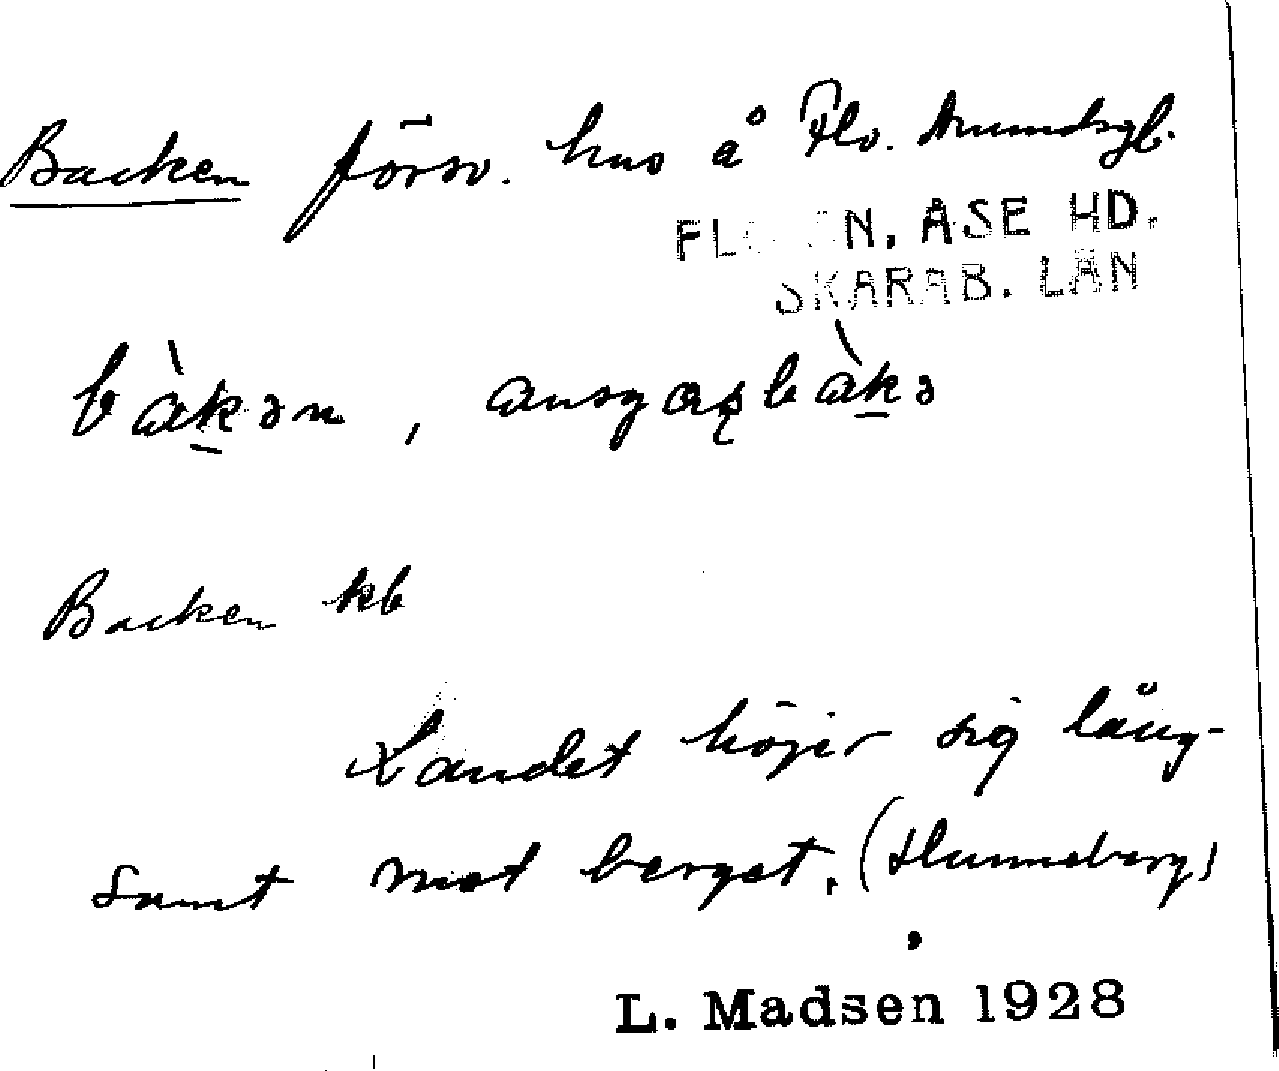 Backen försv. hus å Flo. Amundsgb.
N, ÅSE HD.
SKARAB. LÄN
bàkən,
Backen kb
Landet höjer sig lång-
samt mot berget. (Hunneberg)
L. Madsen 1928